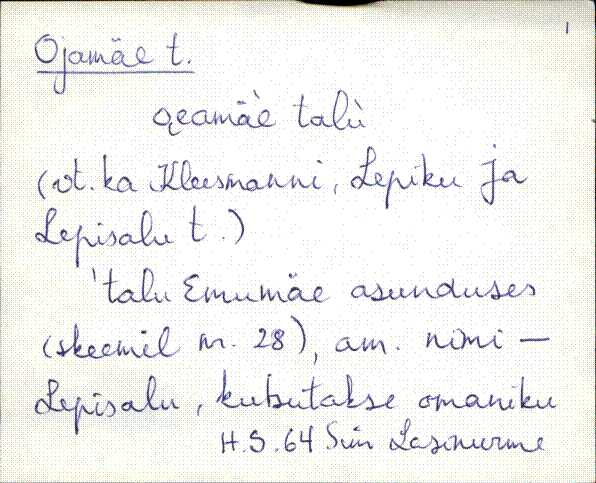 1
Ojamäe t.
o̬eamäè talù
(vt. ka Kleesmanni, Lepiku ja
Lepisalu t.)
'talu Emumäe asunduses
(skeemil nr. 28), am. nimi –
Lepisalu, kutsutakse omaniku
H.S. 64 Sim Lasinurme